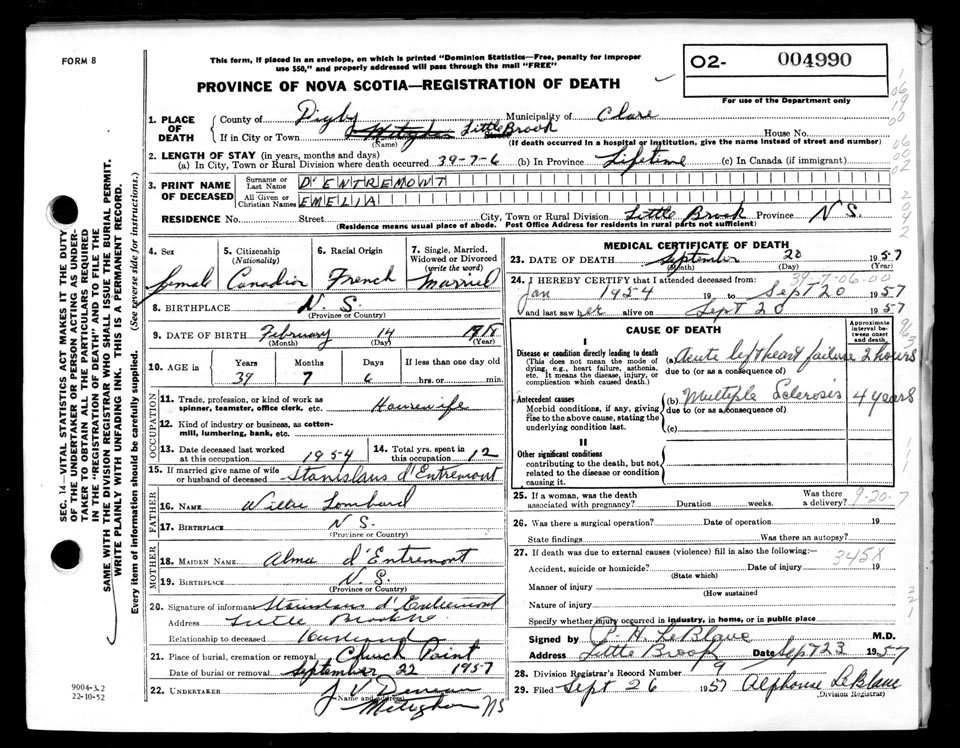 FORM 8
This form, if placed in an envelope, on which is printed "Dominion Statistics—Free, penalty for improper
use $50," and properly addressed will pass through the mail "FREE"
PROVINCE OF NOVA SCOTIA—REGISTRATION OF DEATH
O2- 004990
For use of the Department only
1. PLACE OF DEATH
County of Digby Municipality of Clare
If in City or Town Meteghan Little Brook House No.
(Name) (If death occurred in a hospital or institution, give the name instead of street and number)
2. LENGTH OF STAY (in years, months and days)
(a) In City, Town or Rural Division where death occurred 39-7-6 (b) In Province Lifetime (c) In Canada (if immigrant)
3. PRINT NAME OF DECEASED
Surname or Last Name D'ENTREMONT
All Given or Christian Names EMELIA
RESIDENCE No. Street City, Town or Rural Division Little Brook Province N S.
(Residence means usual place of abode. Post Office Address for residents in rural parts not sufficient)
4. Sex female
5. Citizenship (Nationality) Canadian
6. Racial Origin French
7. Single, Married, Widowed or Divorced (write the word) Married
8. BIRTHPLACE N. S.
(Province or Country)
9. DATE OF BIRTH February 14 1918
(Month) (Day) (Year)
10. AGE in Years Months Days If less than one day old
39 7 6 hrs. or min.
OCCUPATION
11. Trade, profession, or kind of work as
spinner, teamster, office clerk, etc. Housewife
12. Kind of industry or business, as cotton-
mill, lumbering, bank, etc.
13. Date deceased last worked at this occupation 1954
14. Total yrs. spent in this occupation 12
15. If married give name of wife
or husband of deceased Stanislaus d'Entremont
FATHER
16. NAME Willie Lombard
17. BIRTHPLACE N S.
(Province or Country)
MOTHER
18. MAIDEN NAME Alma d'Entremont
19. BIRTHPLACE N. S.
(Province or Country)
20. Signature of informant Stanislaus d'Entremont
Address Little Brook
Relationship to deceased Husband
21. Place of burial, cremation or removal Church Point
Date of burial or removal September 22 1957
22. UNDERTAKER J V
(Name and address)
Meteghan NS
9004-3.2
22-10-52
SEC. 14—VITAL STATISTICS ACT MAKES IT THE DUTY
OF THE UNDERTAKER OR PERSON ACTING AS UNDER-
TAKER TO OBTAIN ALL THE PARTICULARS REQUIRED
IN THE "REGISTRATION OF DEATH" AND TO FILE THE
SAME WITH THE DIVISION REGISTRAR WHO SHALL ISSUE THE BURIAL PERMIT.
WRITE PLAINLY WITH UNFADING INK. THIS IS A PERMANENT RECORD.
Every item of information should be carefully supplied. (See reverse side for instructions.)
MEDICAL CERTIFICATE OF DEATH
23. DATE OF DEATH September 20 1957
(Month) (Day) (Year)
39-7-06-00
24. I HEREBY CERTIFY that I attended deceased from
Jan 1954 19 to Sept 20 1957
and last saw her alive on Sept 20 1957
CAUSE OF DEATH
Approximate interval between onset and death
I
Disease or condition directly leading to death
(This does not mean the mode of
dying, e.g., heart failure, asthenia,
etc. It means the disease, injury, or
complication which caused death.)
(a) Acute left heart failure 2 hours
due to (or as a consequence of)
Antecedent causes
Morbid conditions, if any, giving
rise to the above cause, stating the
underlying condition last.
(b) Multiple Sclerosis 4 years
due to (or as a consequence of)
(c)
II
Other significant conditions
contributing to the death, but not
related to the disease or condition
causing it.
25. If a woman, was the death associated with pregnancy? Duration weeks. Was there a delivery?
9-20-7
26. Was there a surgical operation? Date of operation 19
State findings Was there an autopsy?
27. If death was due to external causes (violence) fill in also the following:—
345X
Accident, suicide or homicide? Date of injury 19
(State which)
Manner of injury
(How sustained)
Nature of injury
Specify whether injury occurred in industry, in home, or in public place
Signed by P. H. LeBlanc M.D.
Address Little Brook Date Sept 23 1957
28. Division Registrar's Record Number 9
29. Filed Sept 26 1957 Alphonse LeBlanc
(Division Registrar)